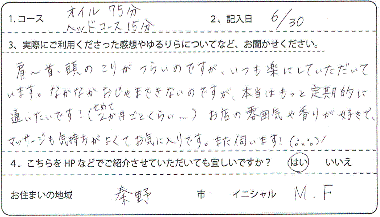 1.コース オイル 75分
ヘッドコース15分
2、記入日 6/30
3、実際にご利用くださった感想やゆるりらについてなど、お聞かせください。
肩〜首、頭のこりがつらいのですが、いつも楽にしていただいて
います。なかなかおじゃまできないのですが、本当はもっと定期的に
通いたいです!(せめて2か月ごとくらい…) お店の雰囲気や香りが好きで、
マッサージも気持ちがよくてお気に入りです。また伺います!(^o^)/
4.こちらをHPなどでご紹介させていただいても宜しいですか? はい いいえ
お住まいの地域 秦野 市 イニシャル M.F